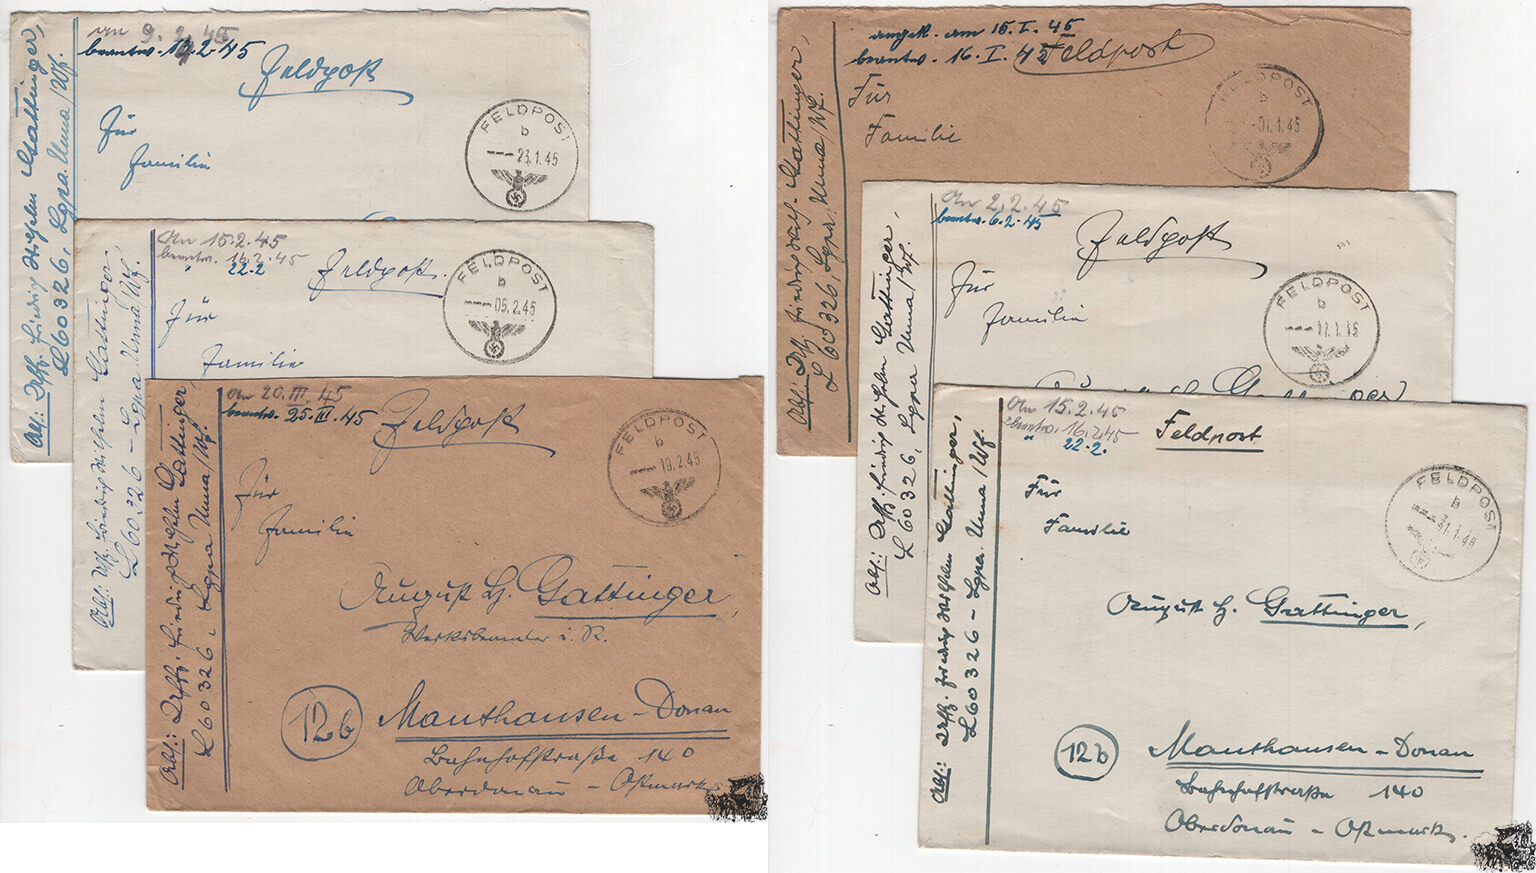 an 9.2.45
beantw. 10.2.45
Feldpost
FELDPOST
b
23.1.45
Für
Familie
Gattinger,
L 60326, Lgpa. Unna/Wf.
An 15.2.45
beantw. 16.2.45
" 22.2
Feldpost.
FELDPOST
b
05.2.45
Für
Familie
Abs.: Friedrich Wilhelm Gattinger,
L 60326 - Lgpa. Unna/Wf.
An 20.III.45
beantw. 25.III.45
Feldpost
FELDPOST
b
19.2.45
Für
Familie
August H. Gattinger,
Werksbeamter i. R.
12b
Mauthausen-Donau
Bahnhofstraße 140
Oberdonau - Ostmark
Abs.: Friedrich Wilhelm Gattinger
L 60326, Lgpa. Unna/Wf.
angek. am 15.I.45
beantw. 16.I.45
Feldpost
FELDPOST
b
01.1.45
Für
Familie
Abs.: Gattinger,
L 60326 Lgpa. Unna/Wf.
An 2.2.45
beantw. 6.2.45
Feldpost
FELDPOST
b
17.1.45
Für
Familie
Abs.: Friedrich Wilhelm Gattinger,
L 60326, Lgpa Unna/Wf.
An 15.2.45
beantw. 16.2.45
" 22.2.
Feldpost
FELDPOST
b
31.1.45
Für
Familie
August H. Gattinger,
12b
Mauthausen-Donau
Bahnhofstraße 140
Oberdonau - Ostmark.
Abs.: Friedrich Wilhelm Gattinger,
L 60326 - Lgpa. Unna/Wf.